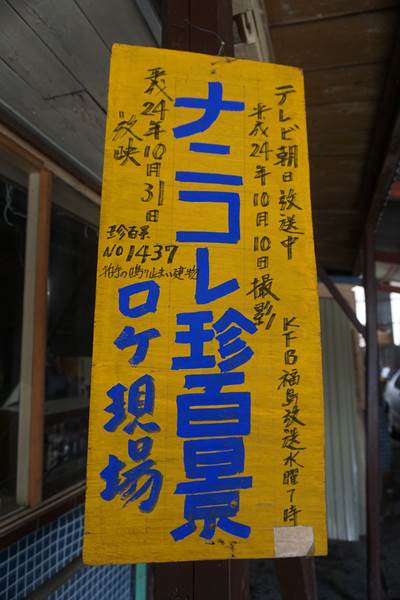 テレビ朝日放送中
KFB福島放送水曜7時
平成24年10月10日撮影
ナニコレ珍百景
ロケ現場
平成24年10月31日
放映
珍百景
NO1437
拍手の鳴り止まい建物